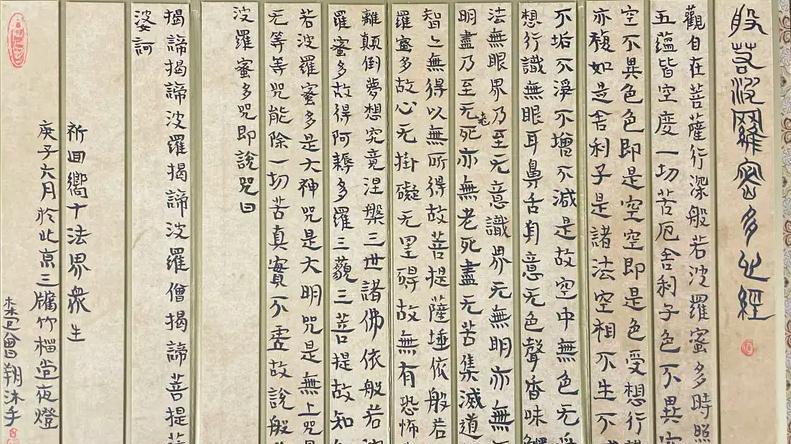 般若波羅密多心經
觀自在菩薩行深般若波羅蜜多時照
五蘊皆空度一切苦厄舍利子色不異
空不異色色即是空空即是色受想行
亦複如是舍利子是諸法空相不生不
不垢不淨不增不減是故空中無色无
想行識無眼耳鼻舌身意无色聲香味
法無眼界乃至无意識界无無明亦無
明盡乃至无老死亦無老死盡无苦集滅道
智亦無得以無所得故菩提薩埵依般若
羅蜜多故心无掛礙无罣碍故無有恐怖
離顛倒夢想究竟涅槃三世諸佛依般若
羅蜜多故得阿耨多羅三藐三菩提故知
若波羅蜜多是大神咒是大明咒是無上咒
无等等咒能除一切苦真實不虛故說般
波羅蜜多咒即說咒曰
揭諦揭諦波羅揭諦波羅僧揭諦菩提
婆訶
祈回嚮十法界衆生
庚子六月於北京三牖竹堂夜燈
曾翔沐手